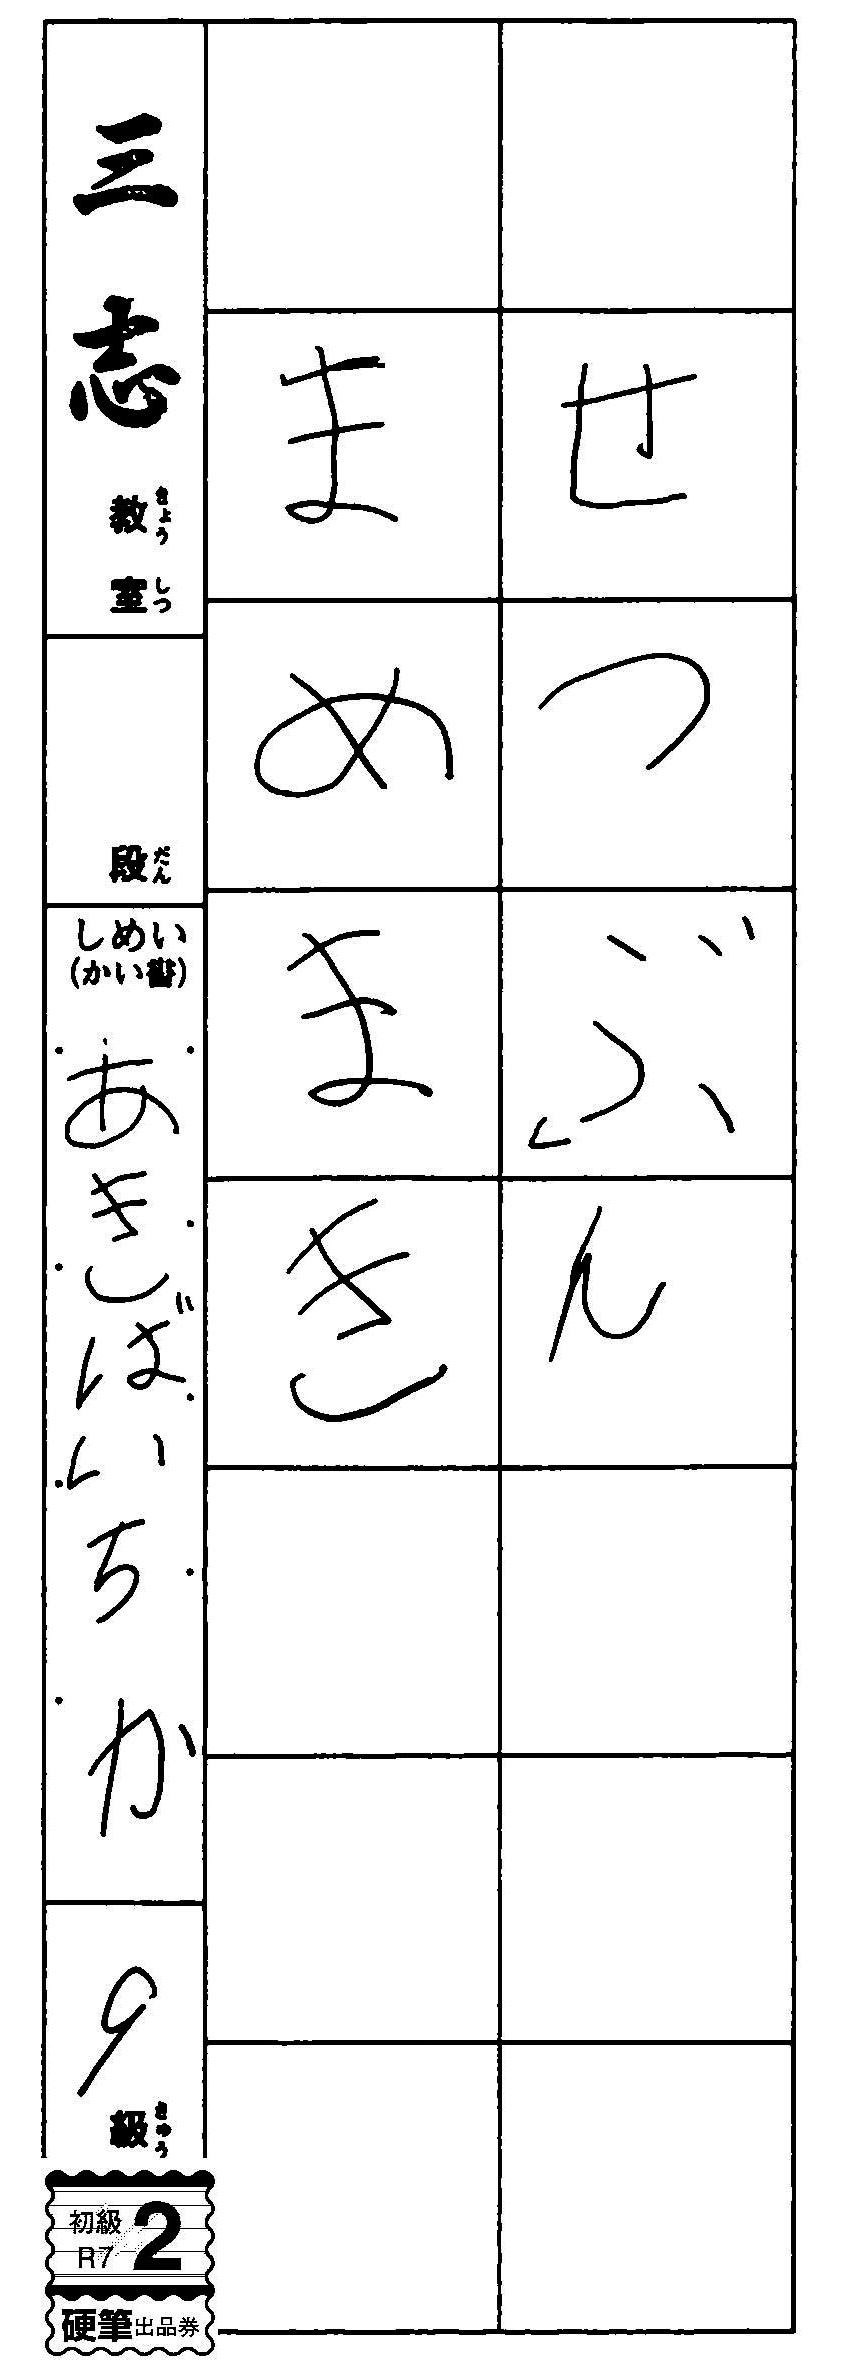 せつぶん
まめまき
三志教室
きょうしつ
段
だん
しめい
(かい書)
あきばいちか
9級
きゅう
初級
R7
2
硬筆出品券